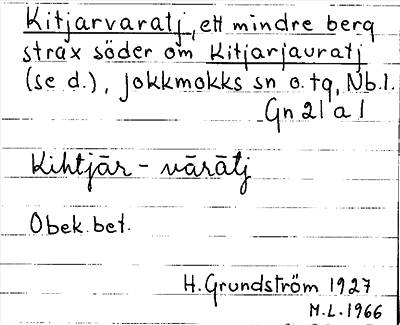 Kitjarvaratj, ett mindre berg
strax söder om Kitjarjauratj
(se d.), Jokkmokks sn o. tg, Nb.l.
Gn 21 a 1
Kihtjār - vārātj
Obek. bet.
H. Grundström 1927
M.L. 1966